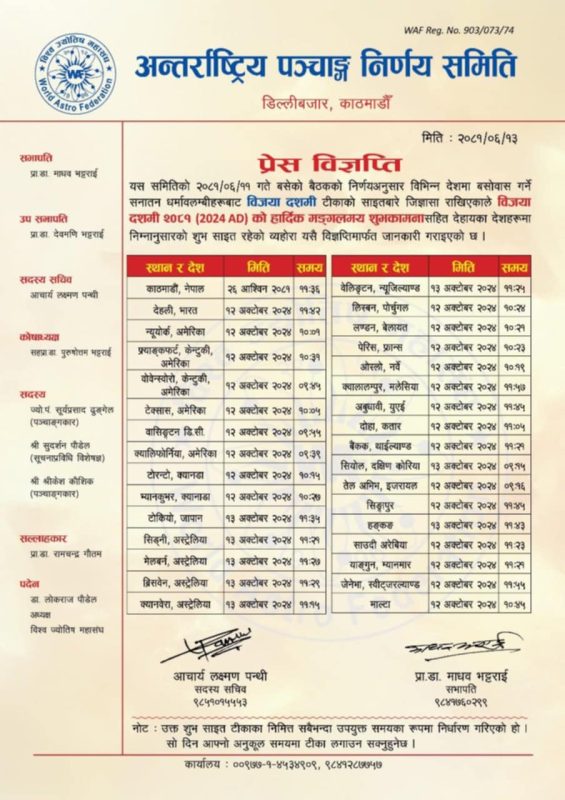 WAF Reg. No. 903/073/74
विश्व ज्योतिष महासंघ
WAF
World Astro Federation
अन्तर्राष्ट्रिय पञ्चाङ्ग निर्णय समिति
डिल्लीबजार, काठमाडौँ
मिति : २०८१/०६/१३
सभापति
प्रा.डा. माधव भट्टराई
उप सभापति
प्रा.डा. देवमणि भट्टराई
सदस्य सचिव
आचार्य लक्ष्मण पन्थी
कोषाध्यक्ष
सहप्रा.डा. पुरुषोत्तम भट्टराई
सदस्य
ज्यो.पं. सूर्यप्रसाद ढुङ्गेल
(पञ्चाङ्गकार)
श्री सुदर्शन पौडेल
(सूचनाप्रविधि विशेषज्ञ)
श्री श्रीकेश कौशिक
(पञ्चाङ्गकार)
सल्लाहकार
प्रा.डा. रामचन्द्र गौतम
पदेन
डा. लोकराज पौडेल
अध्यक्ष
विश्व ज्योतिष महासंघ
प्रेस विज्ञप्ति
यस समितिको २०८१/०६/११ गते बसेको बैठकको निर्णयअनुसार विभिन्न देशमा बसोवास गर्ने
सनातन धर्मावलम्बीहरूबाट विजया दशमी टीकाको साइतबारे जिज्ञासा राखिएकाले विजया
दशमी २०८१ (2024 AD) को हार्दिक मङ्गलमय शुभकामनासहित देहायका देशहरूमा
निम्नानुसारको शुभ साइत रहेको व्यहोरा यसै विज्ञप्तिमार्फत जानकारी गराइएको छ ।
स्थान र देश मिति समय
काठमाडौं, नेपाल २६ आश्विन २०८१ ११:३६
देहली, भारत १२ अक्टोबर २०२४ ११:४२
न्यूयोर्क, अमेरिका १२ अक्टोबर २०२४ १०:०१
फ्र्याङ्कफर्ट, केन्टुकी, अमेरिका १२ अक्टोबर २०२४ १०:३१
वोवेन्स्वोरो, केन्टुकी, अमेरिका १२ अक्टोबर २०२४ ०९:४५
टेक्सास, अमेरिका १२ अक्टोबर २०२४ १०:०५
वासिङ्टन डि.सी. १२ अक्टोबर २०२४ ०९:५५
क्यालिफोर्निया, अमेरिका १२ अक्टोबर २०२४ ०९:३९
टोरन्टो, क्यानडा १२ अक्टोबर २०२४ १०:१५
भ्यानकुभर, क्यानाडा १२ अक्टोबर २०२४ १०:२७
टोकियो, जापान १३ अक्टोबर २०२४ ११:३५
सिड्नी, अस्ट्रेलिया १३ अक्टोबर २०२४ ११:२१
मेलबर्न, अस्ट्रेलिया १३ अक्टोबर २०२४ ११:२७
ब्रिसवेन, अस्ट्रेलिया १३ अक्टोबर २०२४ ११:२९
क्यानवेरा, अस्ट्रेलिया १३ अक्टोबर २०२४ ११:१५
स्थान र देश मिति समय
वेलिङ्टन, न्यूजिल्याण्ड १३ अक्टोबर २०२४ ११:२५
लिस्बन, पोर्चुगल १२ अक्टोबर २०२४ १०:२९
लण्डन, बेलायत १२ अक्टोबर २०२४ १०:२१
पेरिस, फ्रान्स १२ अक्टोबर २०२४ १०:२३
ओस्लो, नर्वे १२ अक्टोबर २०२४ १०:१९
क्वालालम्पुर, मलेसिया १२ अक्टोबर २०२४ ११:५७
अबुधावी, युएई १२ अक्टोबर २०२४ ११:४५
दोहा, कतार १२ अक्टोबर २०२४ ११:०५
बैंकक, थाईल्याण्ड १२ अक्टोबर २०२४ ११:२१
सियोल, दक्षिण कोरिया १३ अक्टोबर २०२४ ०९:१५
तेल अभिभ, इजरायल १२ अक्टोबर २०२४ ०९:१६
सिङ्गापुर १२ अक्टोबर २०२४ ११:४५
हङ्कङ १३ अक्टोबर २०२४ ११:४३
साउदी अरेबिया १२ अक्टोबर २०२४ ११:२३
याङ्गुन, म्यानमार १२ अक्टोबर २०२४ ११:२९
जेनेभा, स्वीट्जरल्याण्ड १२ अक्टोबर २०२४ ११:५५
माल्टा १२ अक्टोबर २०२४ १०:४५
आचार्य लक्ष्मण पन्थी
सदस्य सचिव
९८५१०१५५५३
प्रा.डा. माधव भट्टराई
सभापति
९८४१७६०२९९
नोट : उक्त शुभ साइत टीकाका निमित्त सबैभन्दा उपयुक्त समयका रूपमा निर्धारण गरिएको हो ।
सो दिन आफ्नो अनुकूल समयमा टीका लगाउन सक्नुहुनेछ ।
कार्यालय : ००९७७-१-४५३४९०९, ९८४१२८७७५७